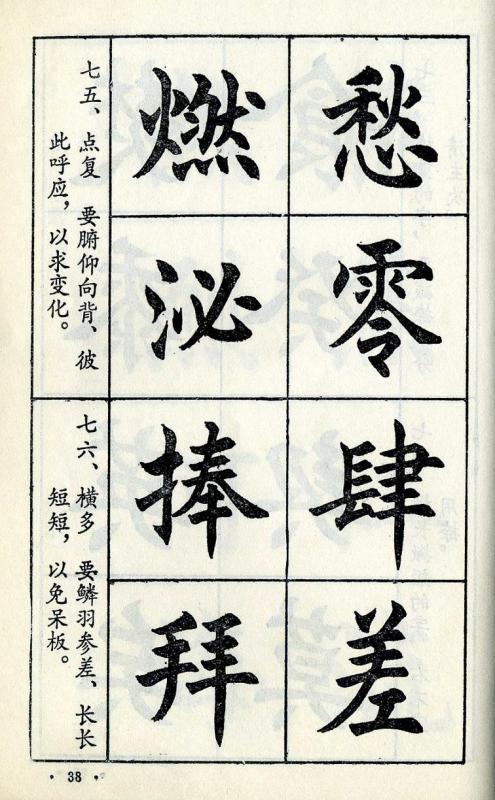 愁零
燃泌
七五、点复　要腑仰向背、彼
此呼应，以求变化。
肆差
捧拜
七六、横多　要鳞羽参差、长长
短短，以免呆板。
· 38 ·